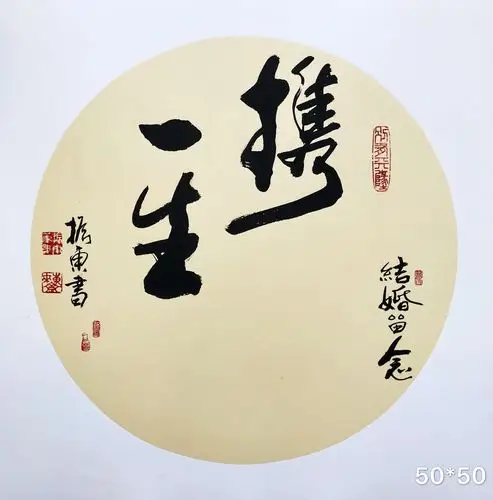 携
一生
結婚留念
東書
50*50